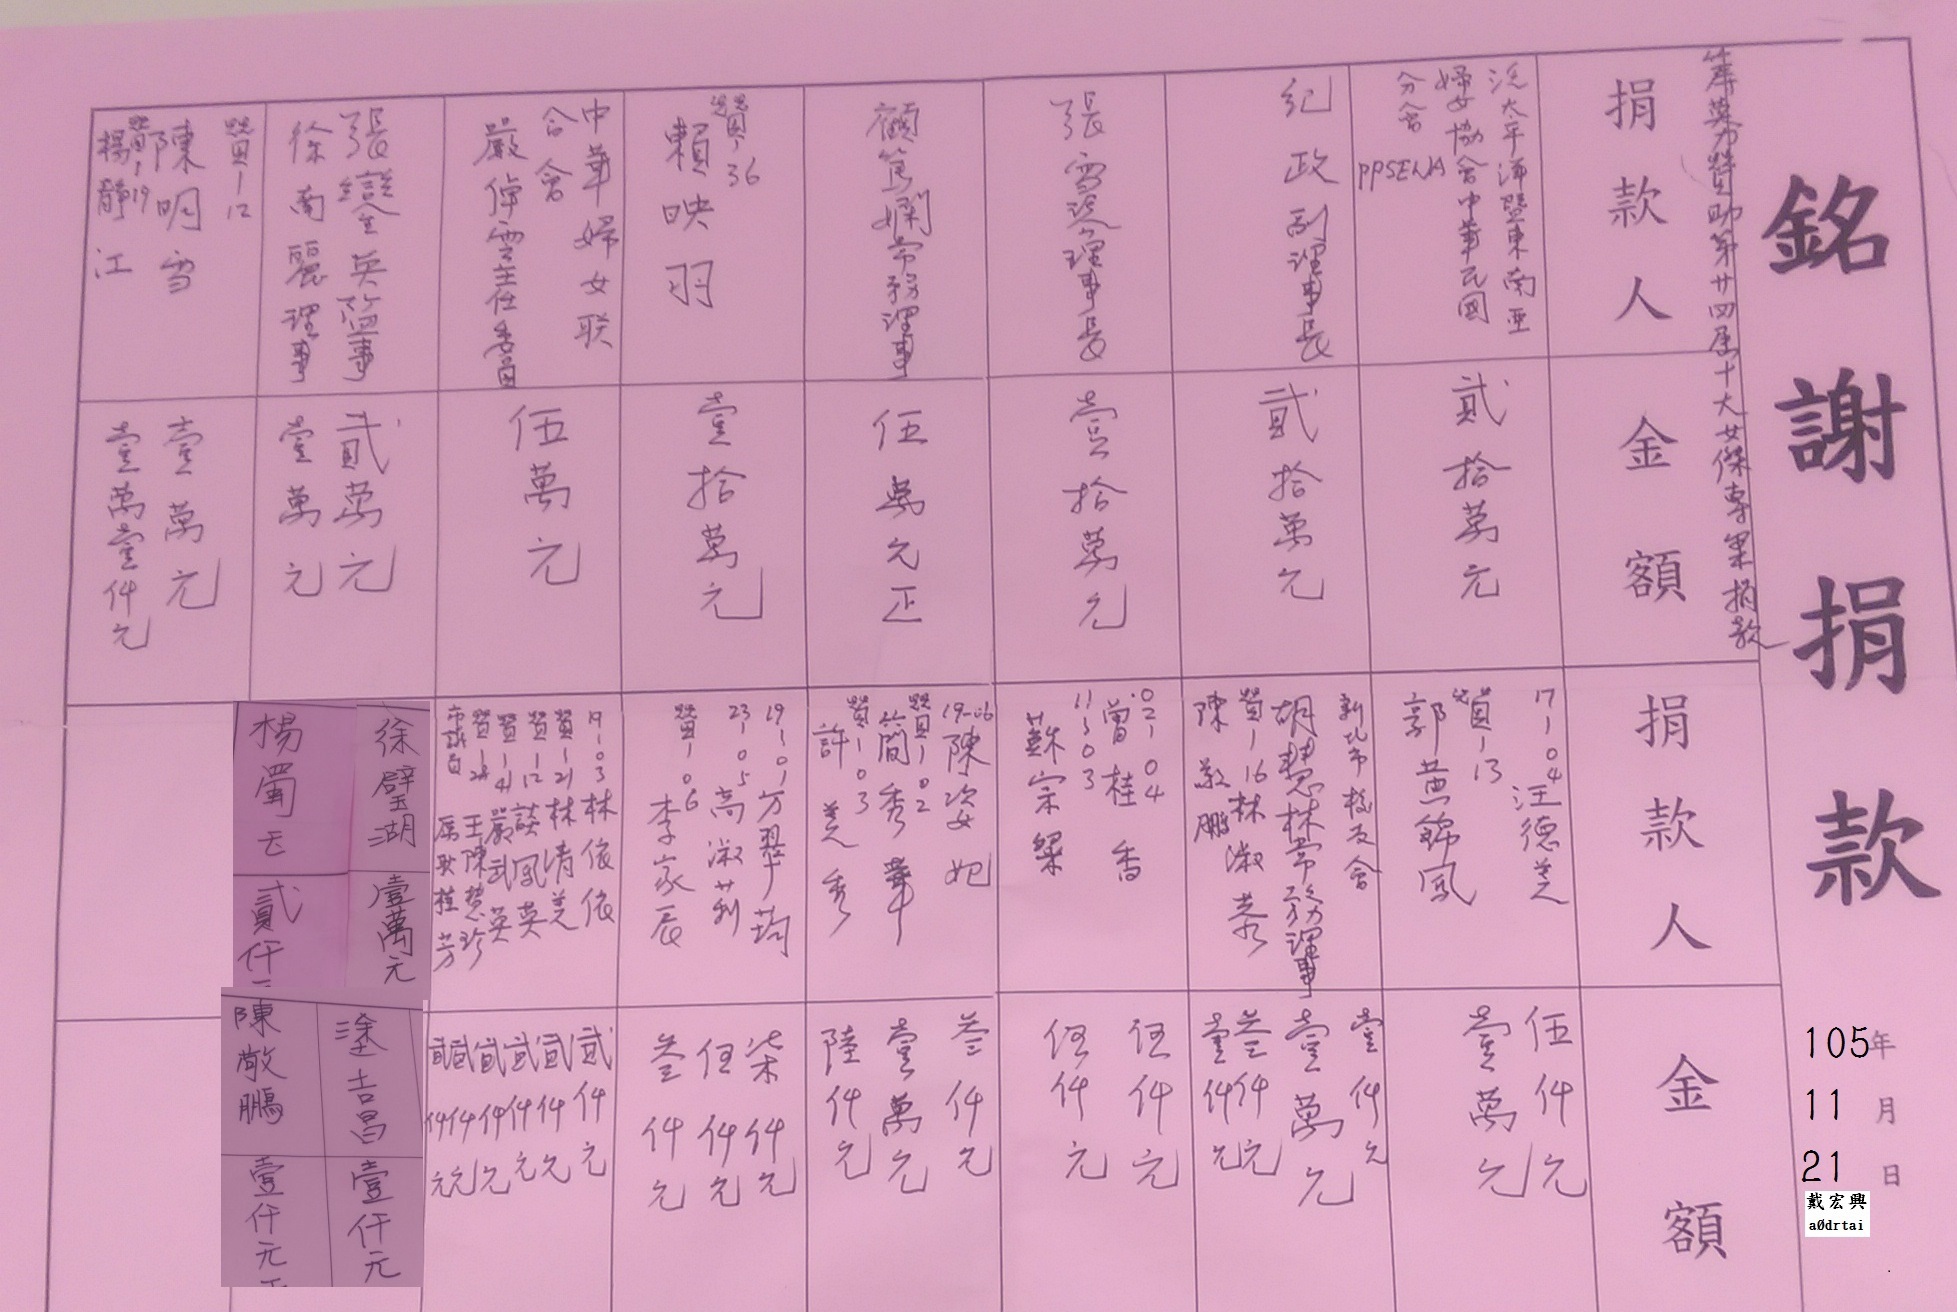 銘謝捐款
105年
11月
21日
戴宏興
aØdrtai
篳英力贊助第廿四屆十大女傑專案捐款
捐款人
金額
捐款人
金額
汎太平洋暨東南亞
婦女協會中華民國
分會 PPSEWA
貳拾萬元
紀政副理事長
貳拾萬元
張雪理事長
壹拾萬元
顧篤嫻常務理事
伍萬元正
贊-36
賴映羽
壹拾萬元
中華婦女联
合會
嚴倬雲主任委員
伍萬元
張鎰英監事
貳萬元
徐南麗理事
壹萬元
贊-12
陳明雪
壹萬元
贊-19
楊靜江
壹萬壹仟元
17-04 汪德美
伍仟元
贊-13
郭黃錦鳳
壹萬元
新北市校友會
壹仟元
胡慧林常務理事
壹萬元
贊-16 林淑
叁仟元
陳敬鵬
壹仟元
02-04
曾桂香
伍仟元
11-03
蘇宗粲
伍仟元
19-06 陳姿妃
叁仟元
贊-02
簡秀華
壹萬元
贊-03
許美秀
陸仟元
19-01 方翠筠
柒仟元
23-05 高淑莉
伍仟元
贊-06
李家辰
叁仟元
19-03 林依依
貳仟元
贊-21 林清美
貳仟元
贊-12 談鳳英
貳仟元
贊-41 嚴武英
貳仟元
贊-28 王陳慧珍
貳仟元
市議員 厲耿桂芳
貳仟元
徐璧湖
壹萬元
楊蜀
貳仟
涂吉昌
壹仟元
陳敬鵬
壹仟元